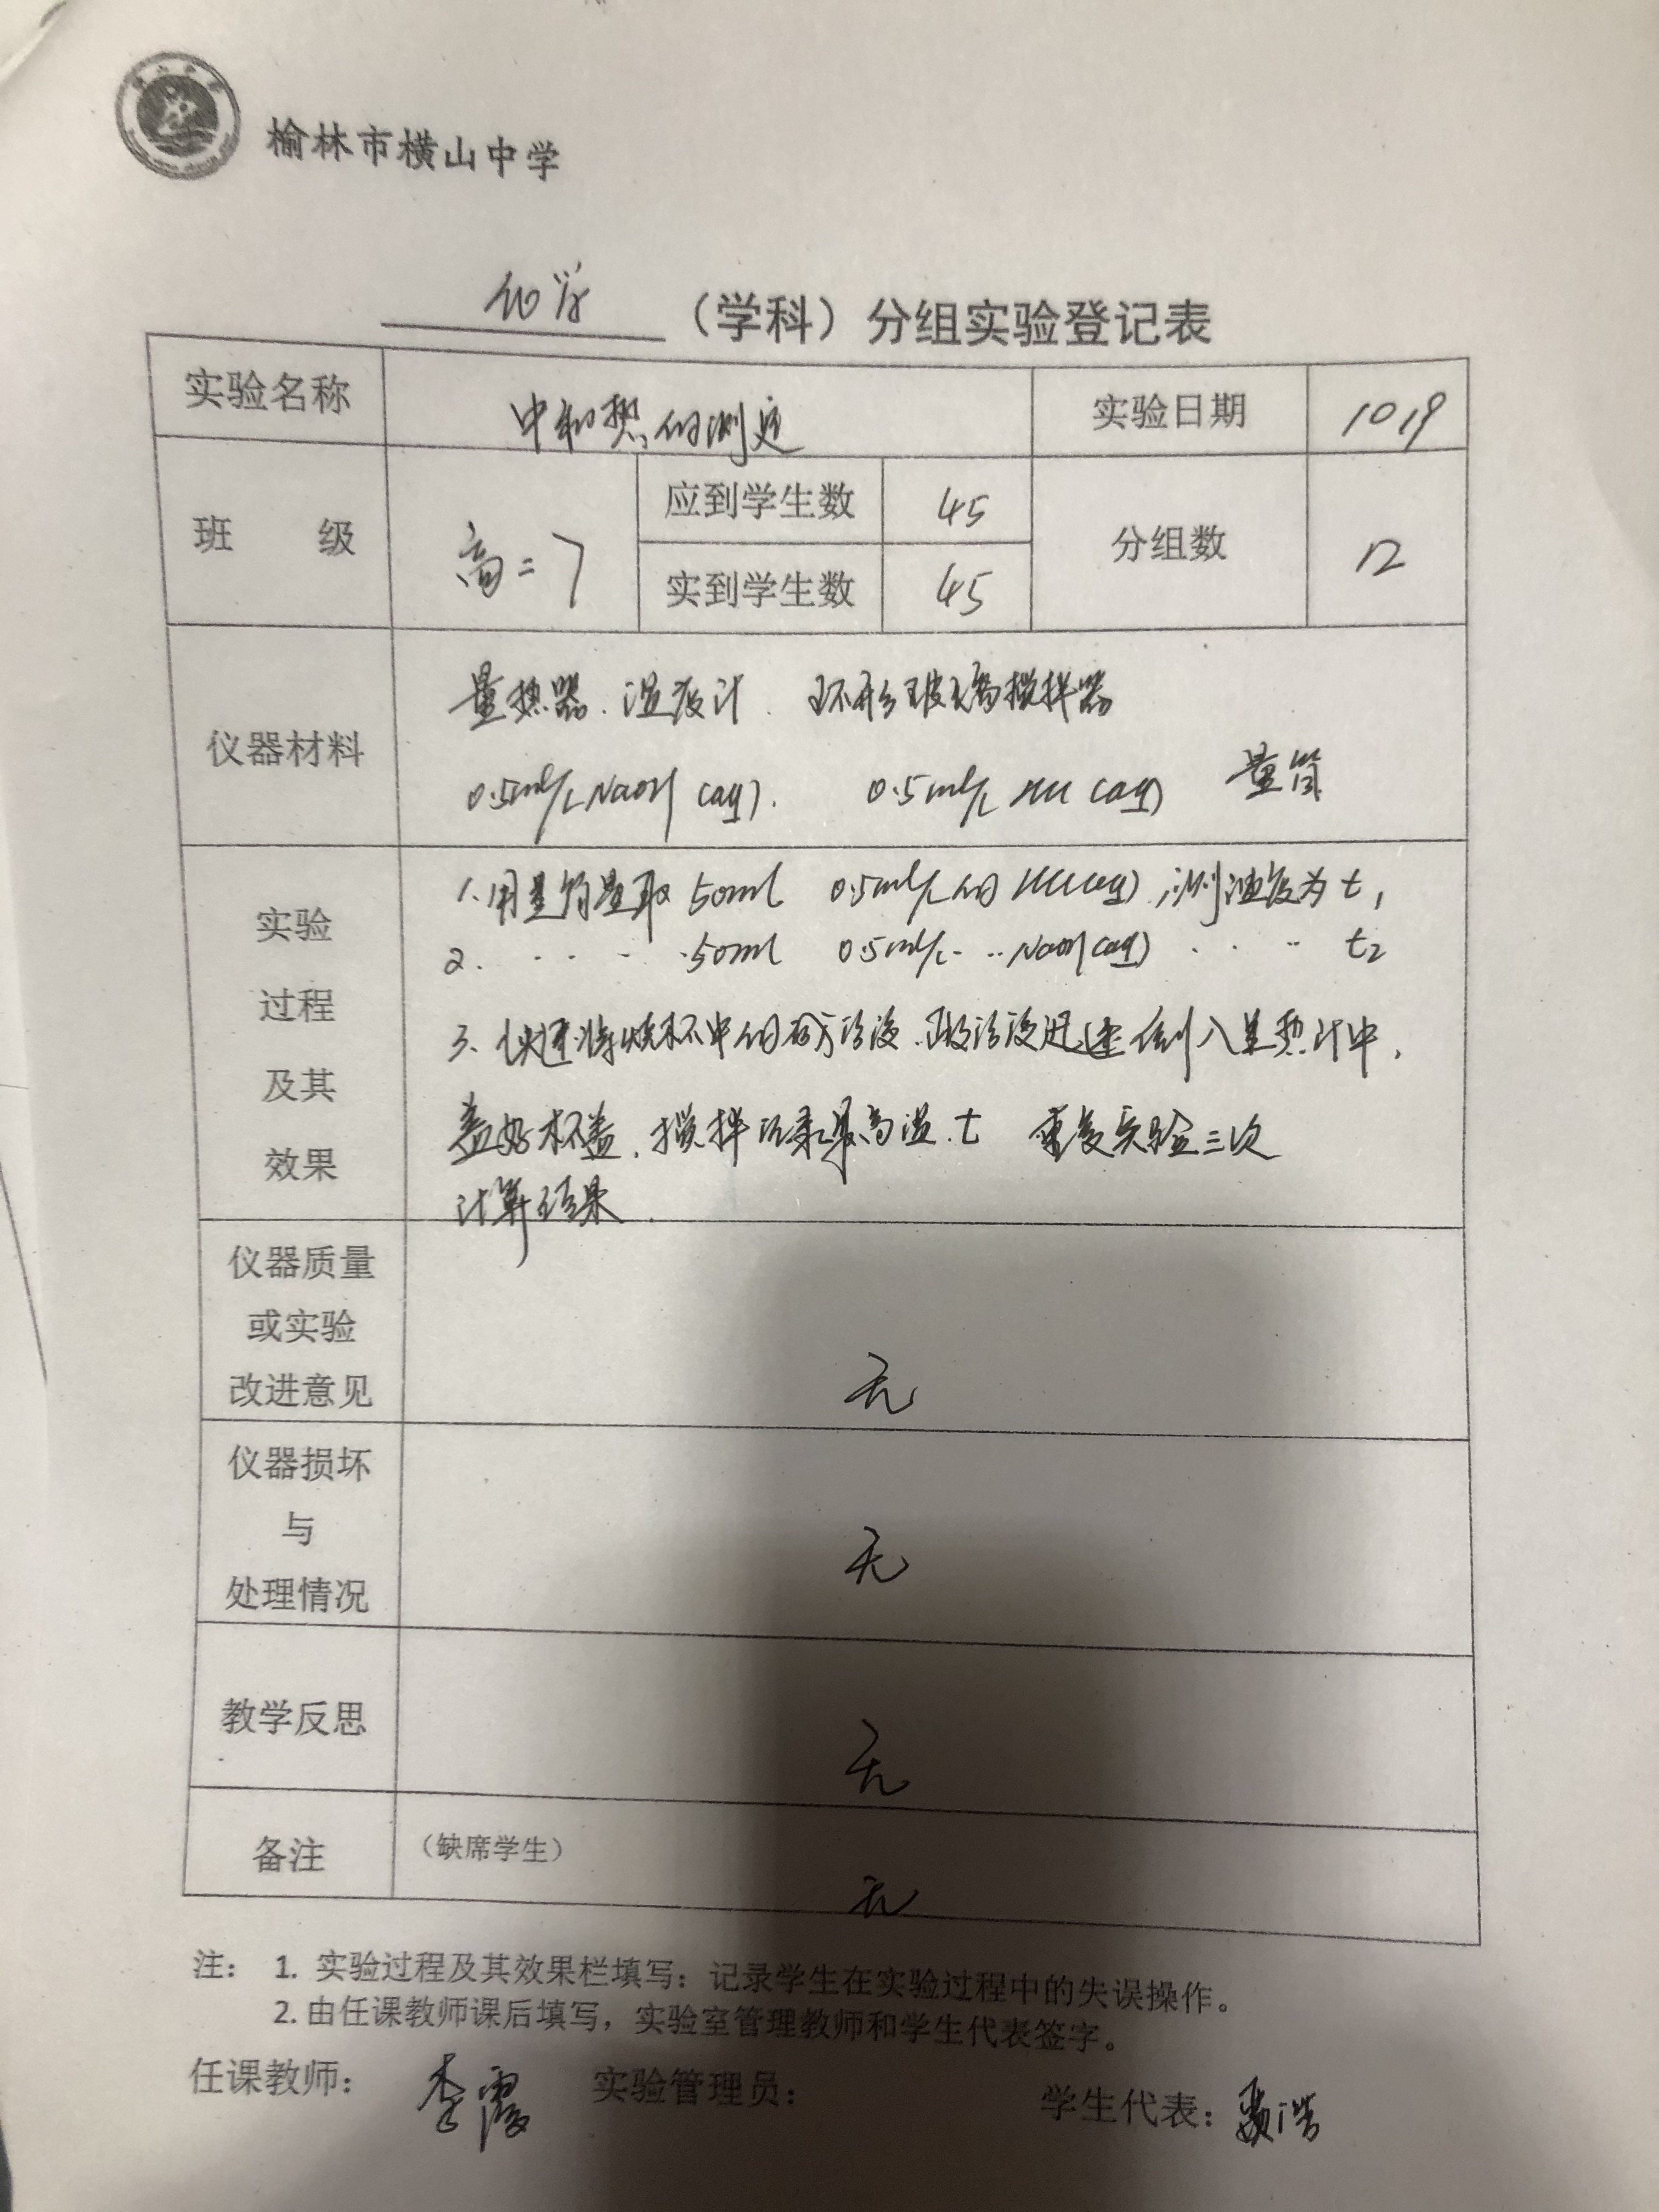 榆林市横山中学
化学 （学科）分组实验登记表
实验名称 中和热的测定 实验日期 1019
班 级 高二7 应到学生数 45 分组数 12
实到学生数 45
仪器材料 量热器、温度计、环形玻璃搅拌器
0.5mol/L NaOH (aq). 0.5mol/L HCl (aq) 量筒
实验
过程
及其
效果
1.用量筒量取 50ml 0.5mol/L的 HCl(aq),测温度为 t1
2. . . . . 50ml 0.5mol/L . . . NaOH(aq) . . . . t2
3、快速将烧杯中的 溶液迅速倒入量热计中,
盖好杯盖,搅拌记录最高温 t 重复实验三次
计算结果.
仪器质量
或实验
改进意见
无
仪器损坏
与
处理情况
无
教学反思 无
备注 （缺席学生） 无
注： 1. 实验过程及其效果栏填写：记录学生在实验过程中的失误操作。
2. 由任课教师课后填写，实验室管理教师和学生代表签字。
任课教师： 李霞 实验管理员： 学生代表：